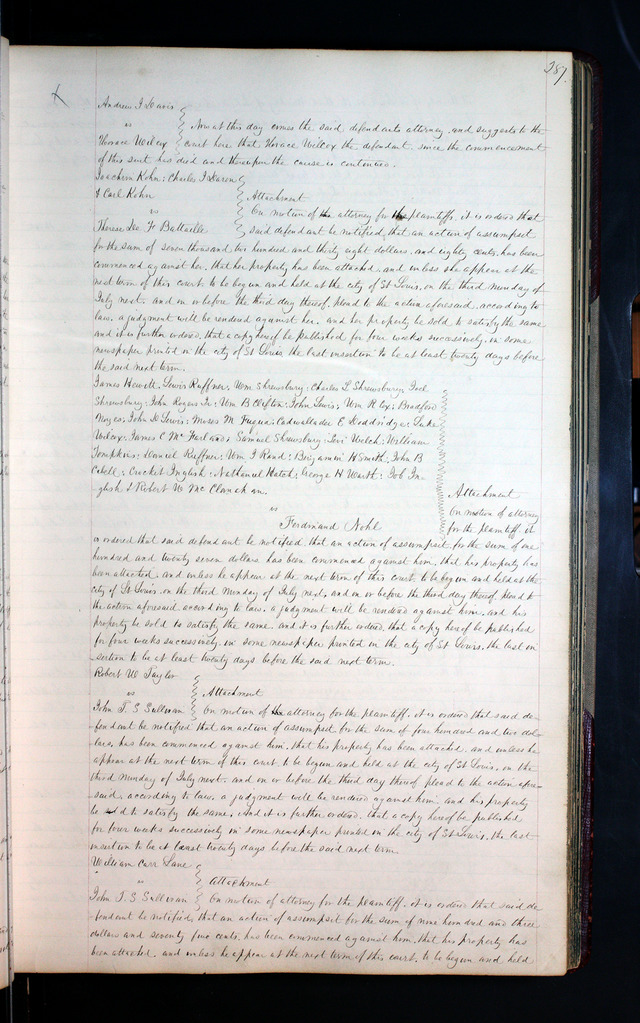 287.
Andrew J Davis
vs
Now at this day comes the said defendants attorney, and suggests to the
Horace Wilcox court here that Horace Wilcox the defendant since the commencement
of this suit has died and thereupon the cause is continued.
Joachim Kohn; Charles F Daron
& Carl Kohn Attachment
vs On motion of the attorney for the plaintiffs, it is ordered that
Therese Lee F Battaille said defendant be notified, that an action of assumpsit
for the sum of seven thousand two hundred and thirty eight dollars, and eighty cents, has been
commenced against her, that her property has been attached, and unless she appear at the
next term of this court to be begun and held at the city of St Louis, on the third Monday of
July next, and on or before the third day thereof, plead to the action aforesaid, according to
law, a judgment will be rendered against her, and her property be sold to satisfy the same
and it is further ordered, that a copy hereof be published for four weeks successively, in some
newspaper printed in the city of St Louis, the last insertion to be at least twenty days before
the said next term.
James Hewett; Lewis Ruffner; Wm Shrewsbury; Charles L Shrewsbury; Joel
Shrewsbury; John Rogers Jr; Wm B Clifton; John Lewis; Wm R Cox; Bradford
Noyes; John D Lewis; Moses M Fuqua; Cadwallader E Doddridge; Luke
Wilcox; James C McFarland; Samuel Shrewsbury; Levi Welch; William
Tompkins; Daniel Ruffner; Wm J Rand; Benjamin H Smith; John B
Cabell; Crocket English; Nathaniel Hatch; George H Warth; Job En-
glish & Robert W McClonahan. Attachment
vs On motion of attorney
Ferdinand Nohl for the plaintiff, it
is ordered that said defendant be notified, that an action of assumpsit, for the sum of one
hundred and twenty seven dollars has been commenced against him, that his property has
been attacted, and unless he appear at the next term of this court, to be begun and held at the
city of St Louis, on the third Monday of July next, and on or before the third day thereof, plead to
the action aforesaid according to law, a judgment will be rendered against him, and his
property be sold to satisfy the same, and it is further ordered, that a copy hereof be published
for four weeks successively, in some newspaper printed in the city of St Louis, the last in
sertion to be at least twenty days before the said next term.
Robert W Taylor
vs Attachment
John T. S Sullivan On motion of the attorney for the plaintiff, it is ordered that said de-
fendant be notified that an action of assumpsit for the sum of four hundred and two dol-
lars, has been commenced against him, that his property has been attached, and unless he
appear at the next term of this court to be begun and held at the city of St Louis, on the
third Monday of July next, and on or before the third day thereof plead to the action afore
said, according to law, a judgment will be rendered against him, and his property
be sold to satisfy the same. And it is further ordered, that a copy hereof be published
for four weeks successively in some newspaper printed in the city of St Louis, the last
insertion to be at least twenty days before the said next term.
William Carr Lane
vs Attachment
John T. S Sullivan On motion of attorney for the plaintiff, it is ordered that said de
fendant be notified, that an action of assumpsit for the sum of nine hundred and three
dollars and seventy four cents, has been commenced against him, that his property has
been attached, and unless he appear at the next term of this court, to be begun and held